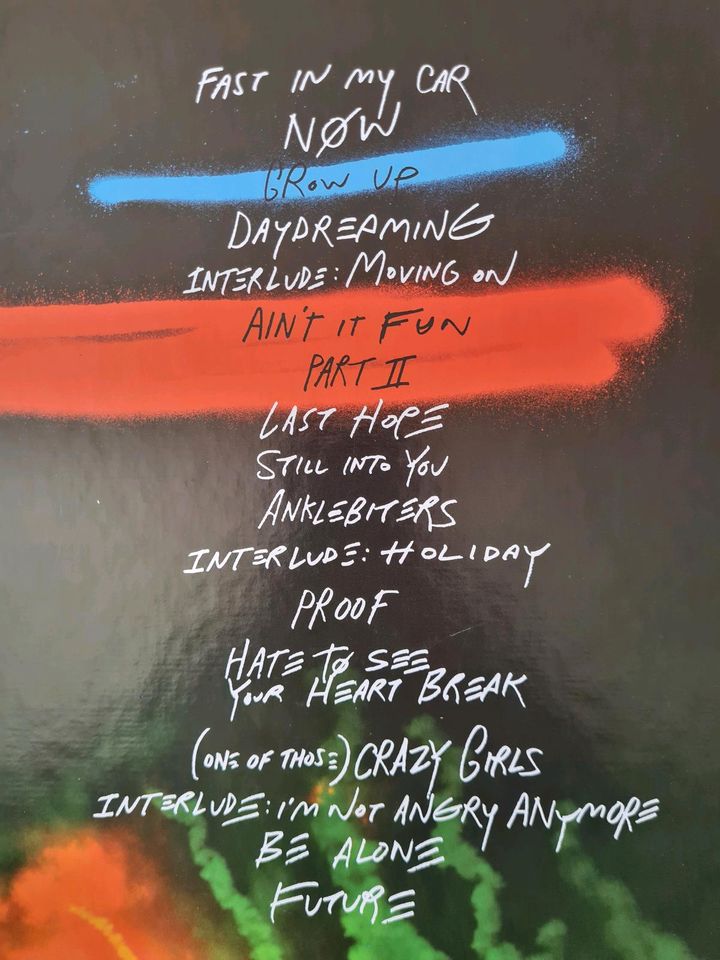 FAST IN MY CAR
NØW
GROW UP
DAYDREAMING
INTERLUDE: MOVING ON
AIN'T IT FUN
PART II
LAST HOPE
STILL INTO YOU
ANKLEBITERS
INTERLUDE: HOLIDAY
PROOF
HATE TØ SEE
YOUR HEART BREAK
(ONE OF THOSE) CRAZY GIRLS
INTERLUDE: I'M NOT ANGRY ANYMORE
BE ALONE
FUTURE